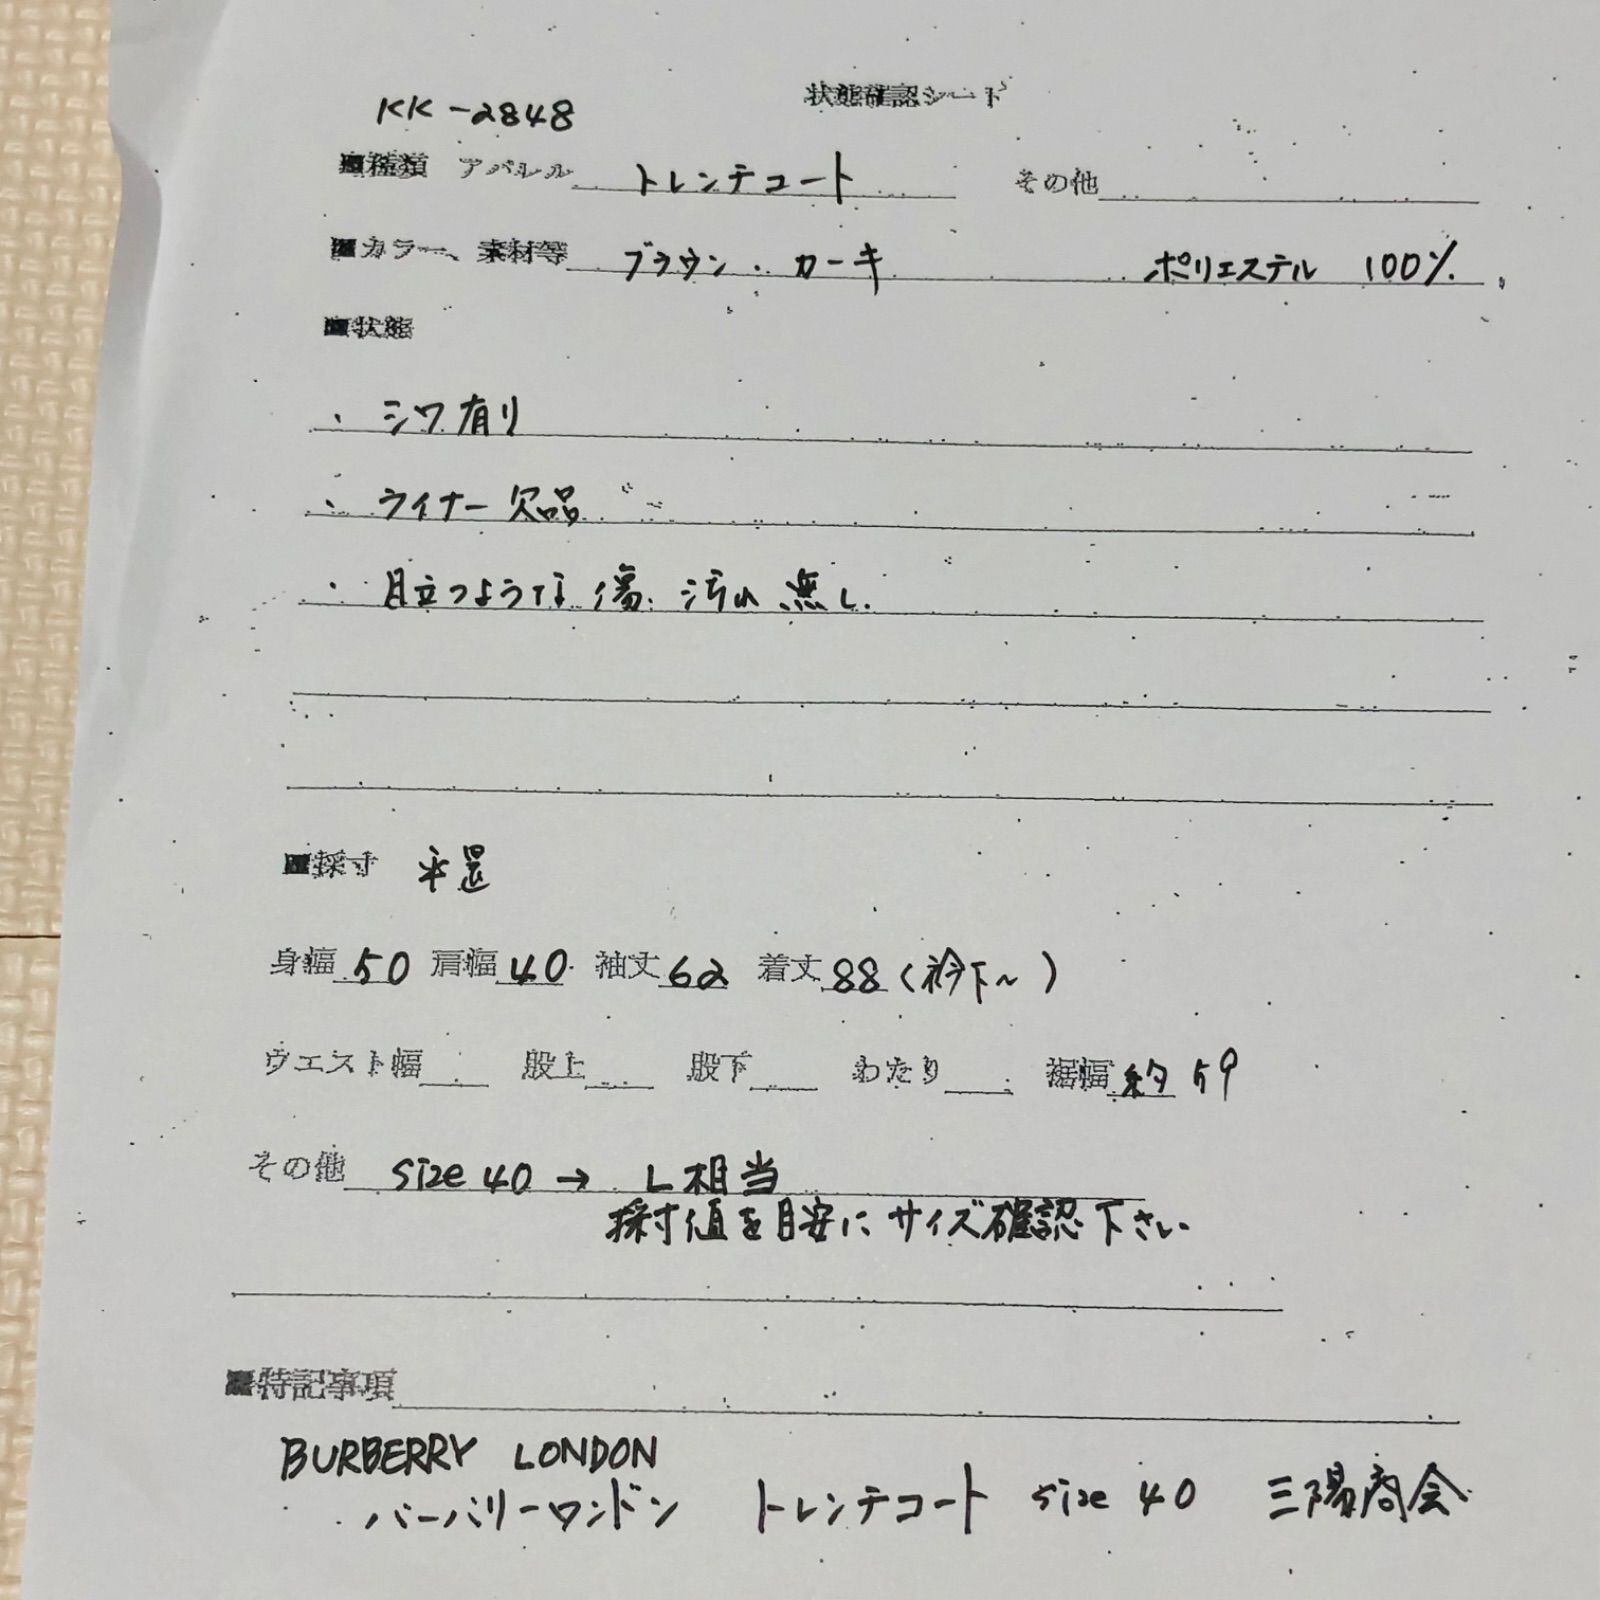 状態確認シート
KK-2848
■種類 アパレル トレンチコート その他
■カラー、素材等 ブラウン・カーキ ポリエステル 100%
■状態
・シワ有り
・ライナー欠品
・目立つような傷.汚れ無し.
■採寸 平置
身幅 50 肩幅 40 袖丈 62 着丈 88 (衿下~)
ウエスト幅 股上 股下 わたり 裾幅 約59
その他 size 40 → L相当
採寸値を目安にサイズ確認下さい
■特記事項
BURBERRY LONDON
バーバリーロンドン トレンチコート size 40 三陽商会